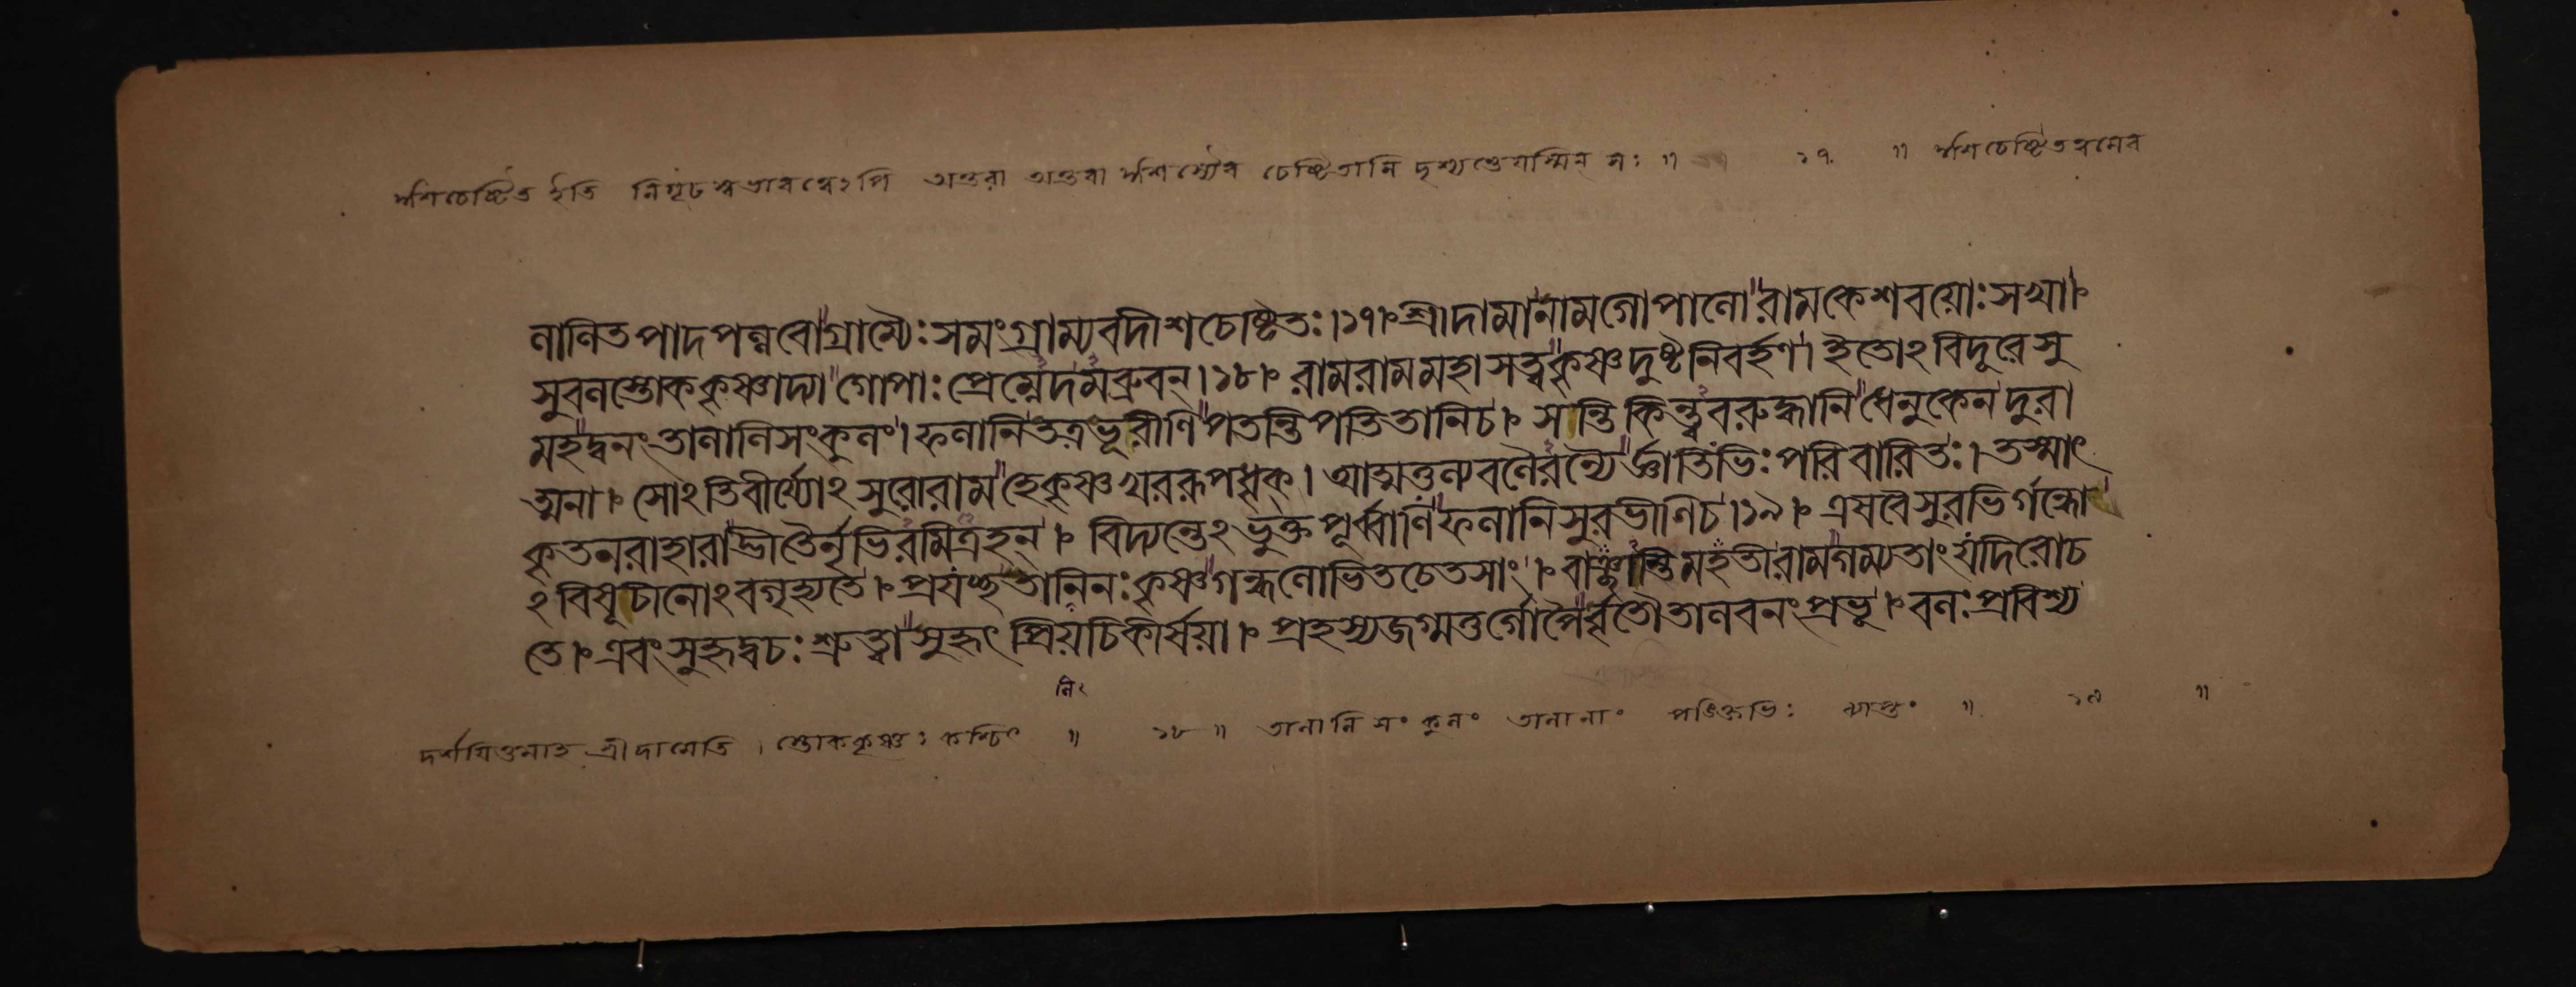 ঈশচেষ্টিত ইতি নিগূঢস্বভাবত্বেঽপি অন্তরা অন্তরা ঈশস্যৈব চেষ্টিতানি দৃশ্যন্তে যস্মিন্ সঃ ॥ ১৭ ॥ ঈশচেষ্টিতত্বমেব
লালিতপাদপল্লবোগ্রাম্যৈঃসমংগ্রাম্যবদীশচেষ্টিতঃ।১৭।শ্রীদামানামগোপালোরামকেশবয়োঃসখা।
সুবলস্তোককৃষ্ণাদ্যা গোপাঃ প্রেম্নেদমব্রুবন্।১৮। রামরামমহাসত্ত্বকৃষ্ণদুষ্টনিবর্হণ। ইতোঽবিদূরেসু
মহদ্বনংতালালিসংকুলং।ফলানিতত্রভূরীণিপতন্তিপতিতানিচ। সন্তিকিন্ত্ববরুদ্ধানিধেনুকেনদুরা
ত্মনা। সোঽতিবীর্য্যোঽসুরোরামহেকৃষ্ণখররূপধৃক্। আত্মতুল্যবলৈরন্যৈর্জ্ঞাতিভিঃপরিবারিতঃ। তস্মাৎ
কৃতনরাহারাদ্ভীতৈর্নৃভিরমিত্রহন্। বিদ্যন্তেঽভুক্তপূর্ব্বাণিফলানিসুরভীণিচ।১৯। এষবৈসুরভির্গন্ধো
ঽবিষূচীনোঽবগৃহ্যতে। প্রযচ্ছতানিনঃকৃষ্ণগন্ধলোভিতচেতসাং। বাঞ্ছাস্তিমহতীরামগম্যতাংযদিরোচ
তে। এবংসুহৃদ্বচঃশ্রুত্বাসুহৃৎপ্রিয়চিকীর্ষয়া। প্রহস্যজগ্মতুর্গোপৈর্বৃতৌতালবনংপ্রভূ। বলঃপ্রবিশ্য
লি
দর্শয়িতুমাহ শ্রীদামেতি । স্তোককৃষ্ণঃ কশ্চিৎ ॥ ১৮ ॥ তালালিসংকুলং তালানাং পঙক্তিভিঃ ব্যাপ্তং ॥ ১৯ ॥